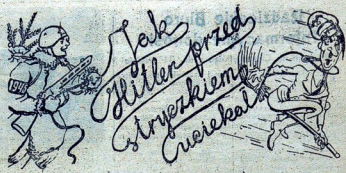 Jak
Hitler przed
stryczkiem
uciekał